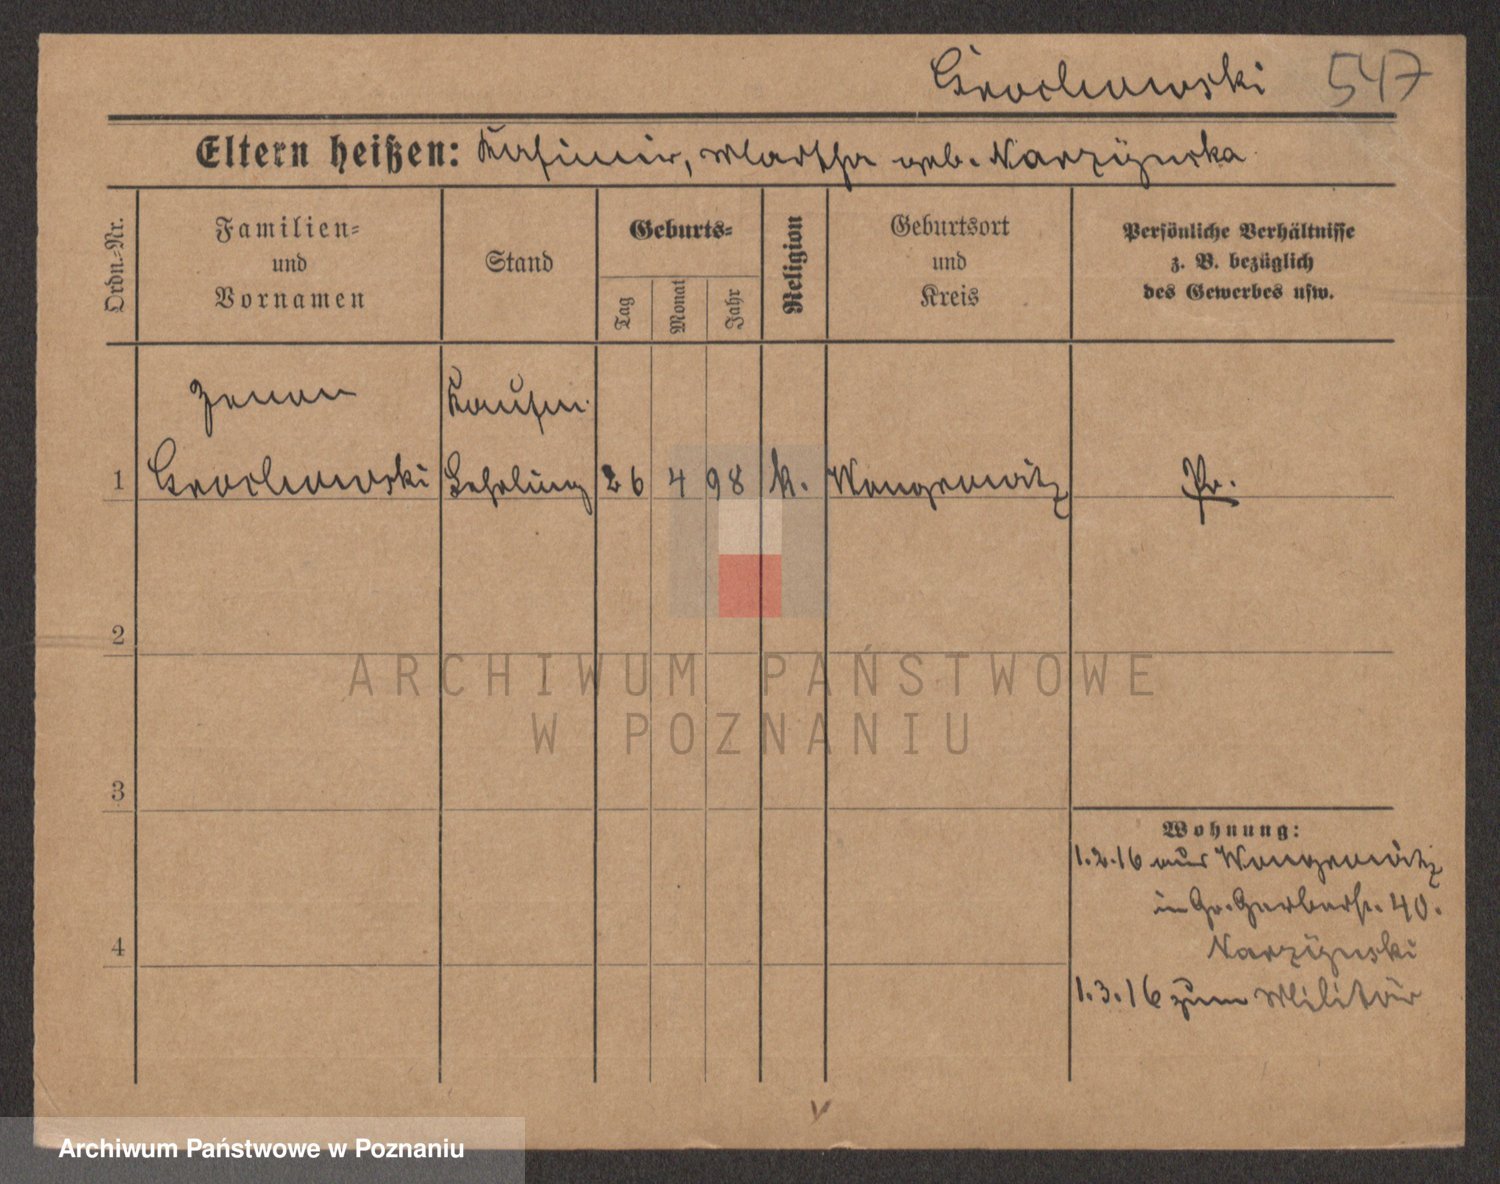 Grochowski 547
Eltern heißen: Kasimir, Martha geb. Narzijnska
Ordn.-Nr.
Familien-
und
Vornamen
Stand
Geburts-
Tag
Monat
Jahr
Religion
Geburtsort
und
Kreis
Persönliche Verhältnisse
z. B. bezüglich
des Gewerbes usw.
Zenon Kaufm.
1 Grochowski Lehrling 26 4 98 k. Wongrowitz Pr.
2
3
4
Wohnung:
1.2.16 aus Wongrowitz
in Gr. Gerberstr. 40.
Narzijnski
1.3.16 zum Militär
ARCHIWUM PAŃSTWOWE
W POZNANIU
Archiwum Państwowe w Poznaniu